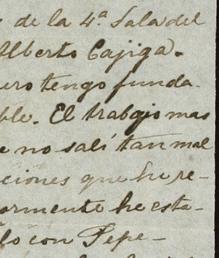 de la 4ª Sala del
Alberto Cajiga.
ero tengo funda-
ble. El trabajo mas
e no salí tan mal
ciones que he re-
ormente he esta-
lo con Pepe-